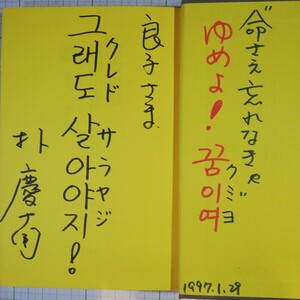 〝命さえ忘れなきゃ〞
クミヨ
ゆめよ！꿈이여
1997.1.29
良子さま
クレド サラヤジ
그래도 살아야지！
朴慶南